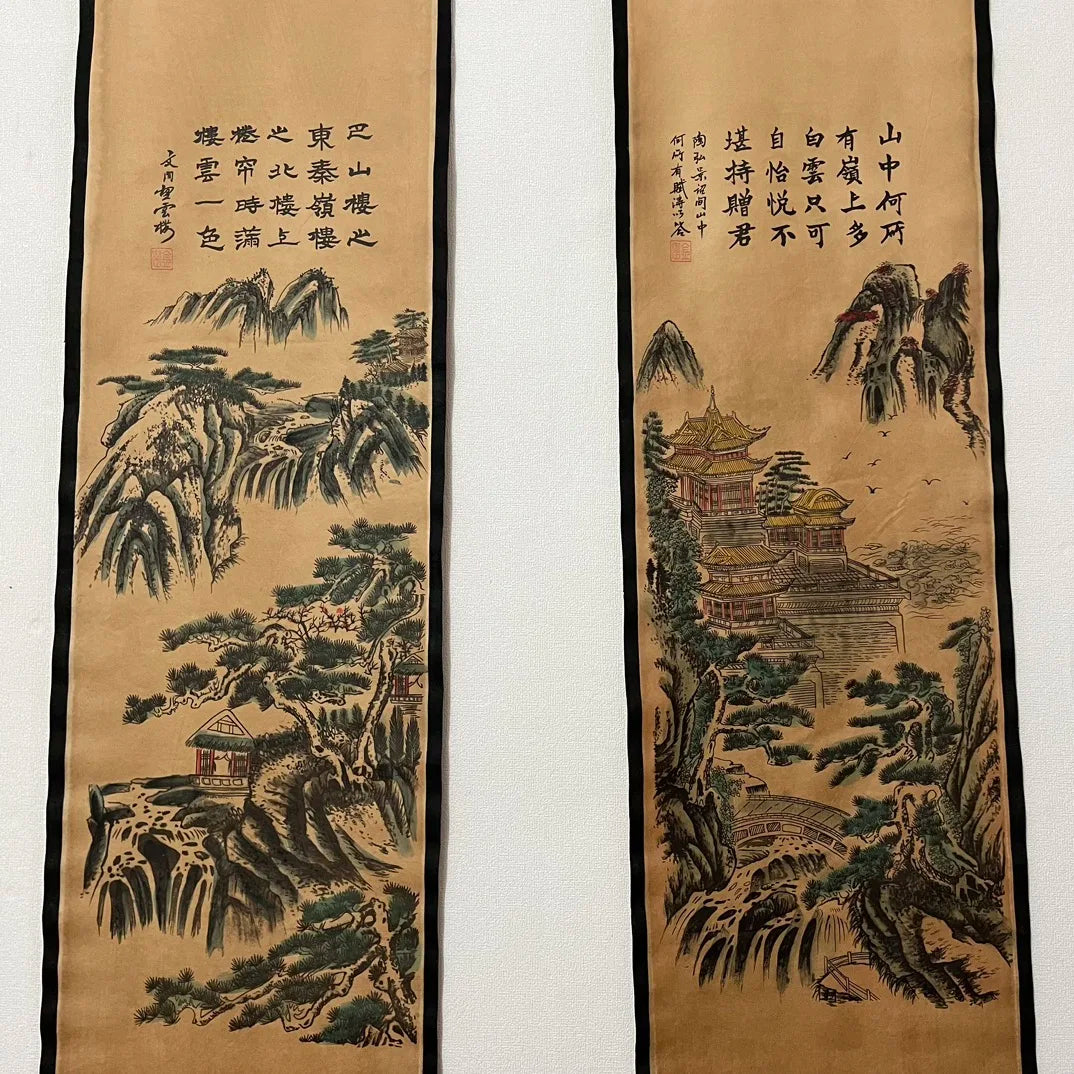 山中何所
有嶺上多
白雲只可
自怡悦不
堪持贈君
陶弘景詔問山中
何所有賦詩以答
巴山樓之
東秦嶺樓
之北樓上
捲帘時滿
樓雲一色
文同望雲樓